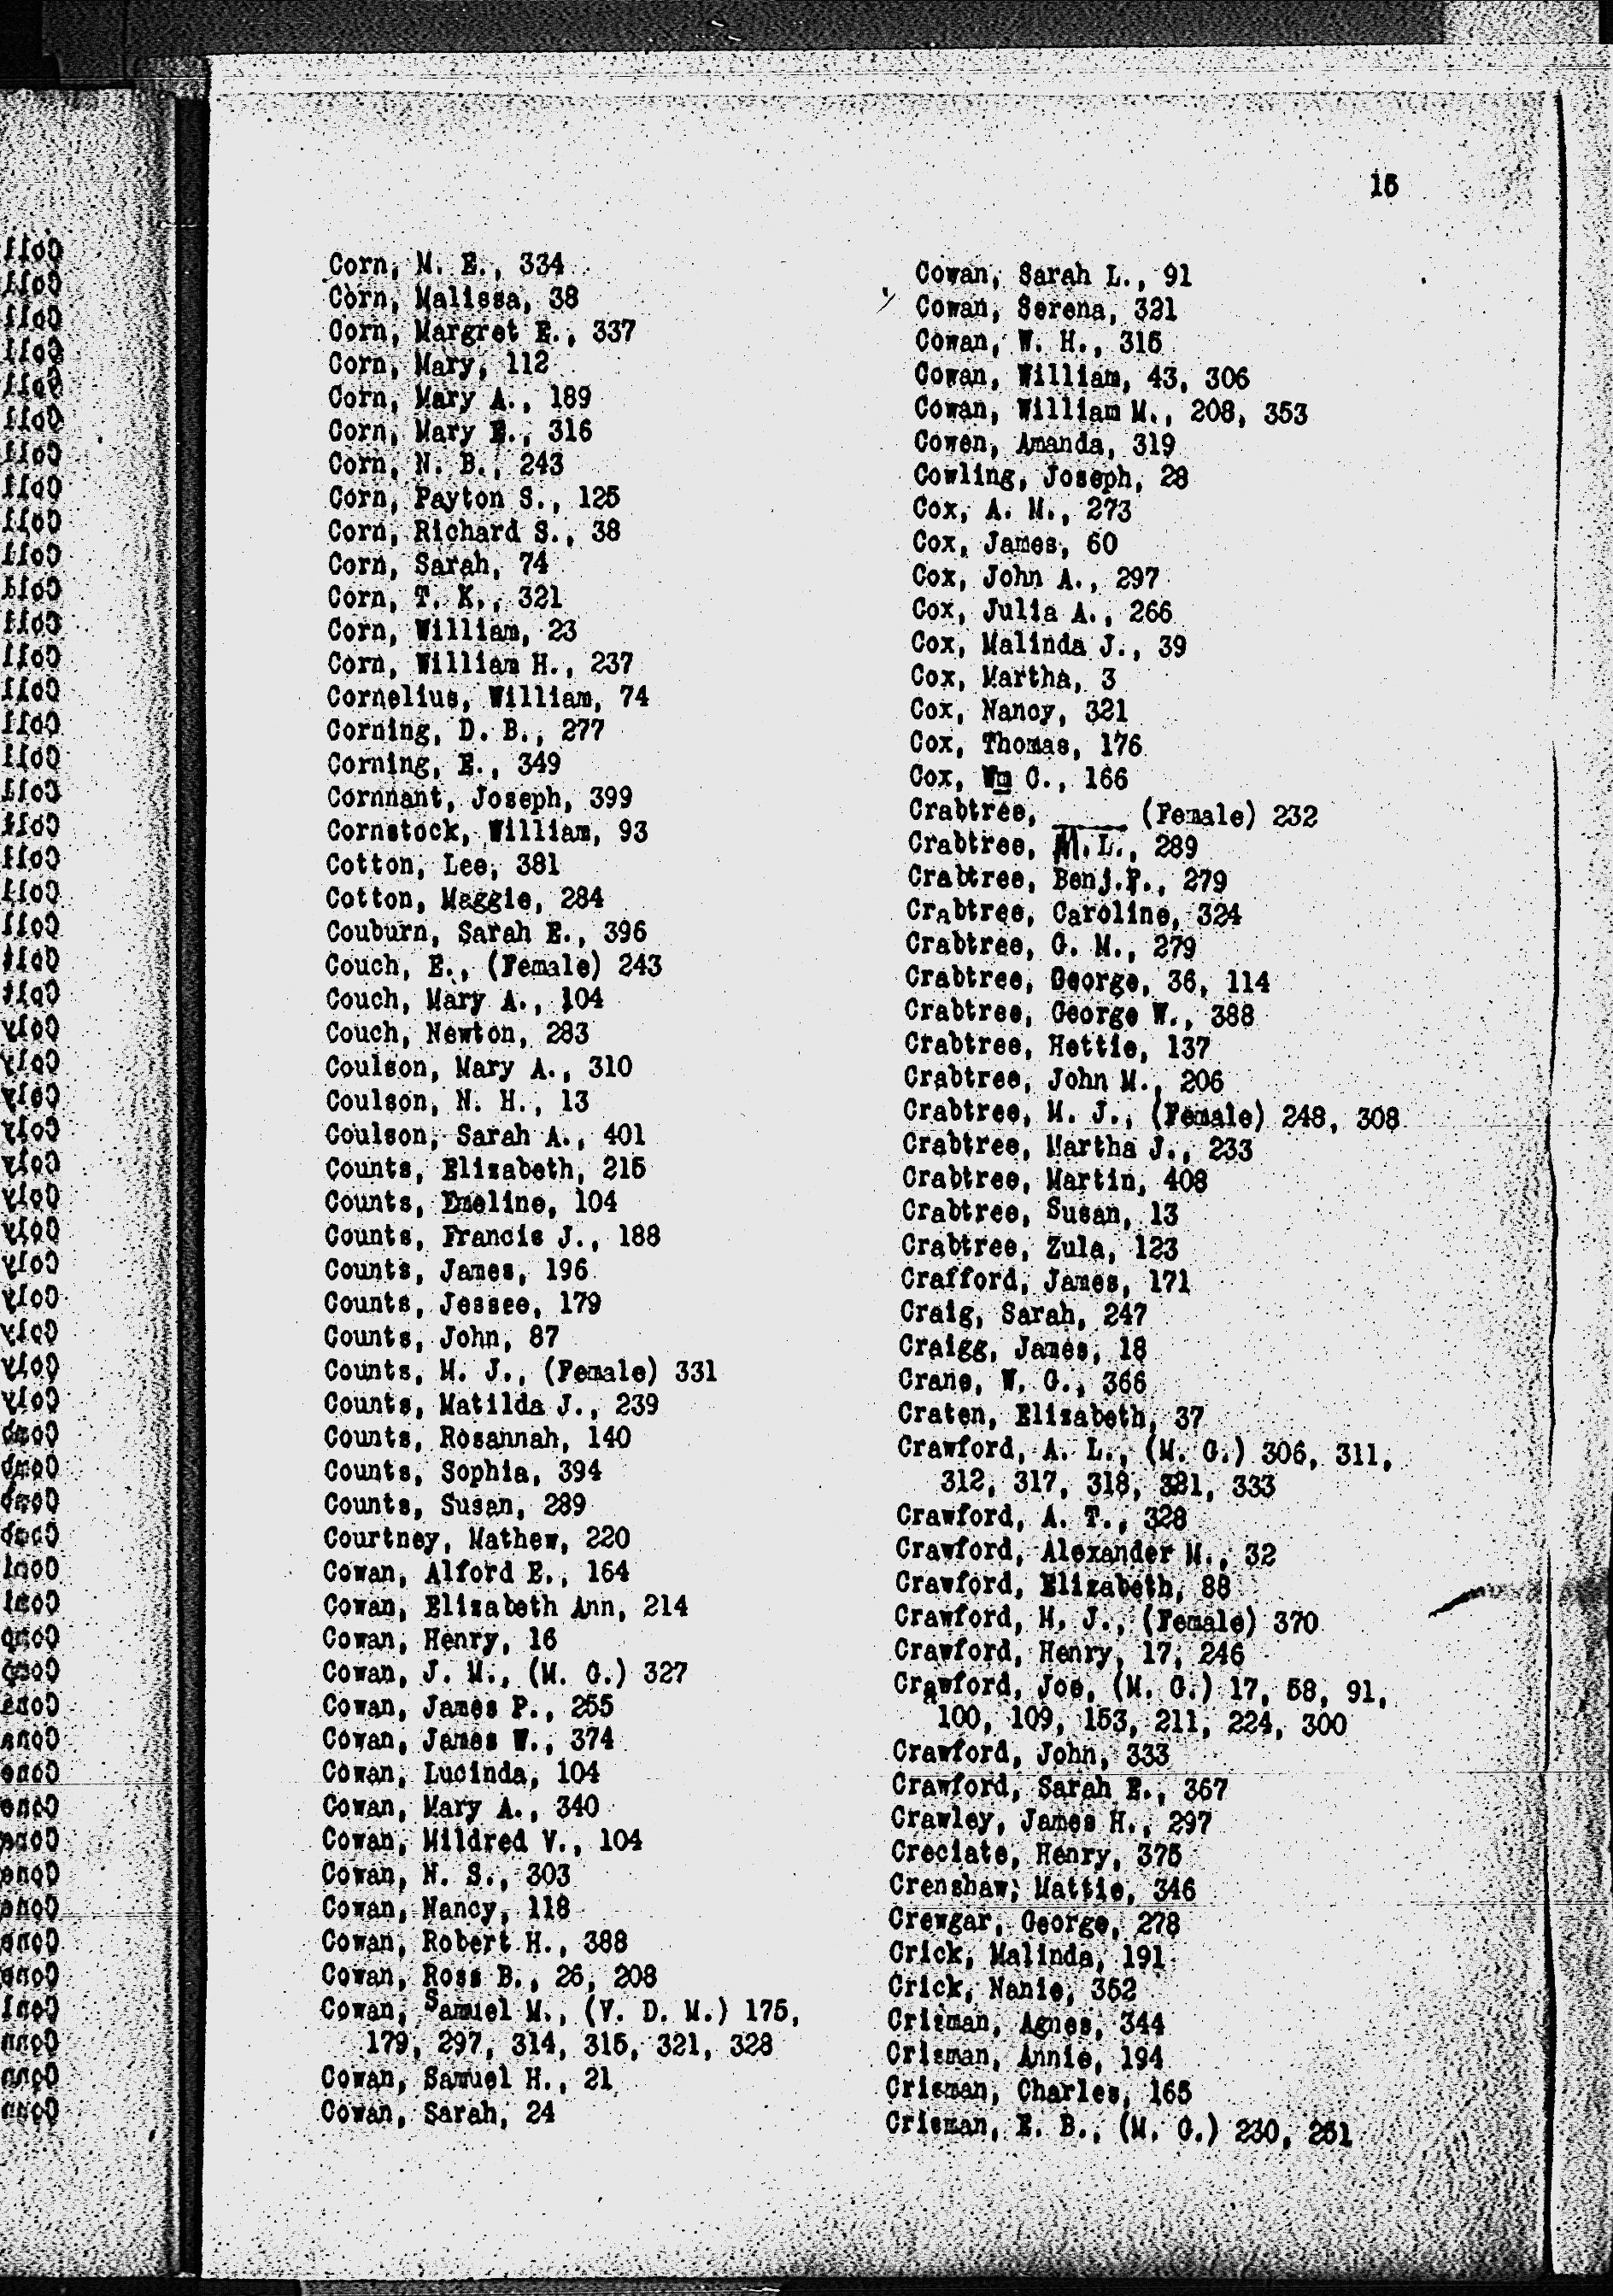 15
Corn, M. E., 334
Corn, Malissa, 38
Corn, Margret E., 337
Corn, Mary, 112
Corn, Mary A., 189
Corn, Mary E., 316
Corn, N. B., 243
Corn, Payton S., 125
Corn, Richard S., 38
Corn, Sarah, 74
Corn, T. K., 321
Corn, William, 23
Corn, William H., 237
Cornelius, William, 74
Corning, D. B., 277
Corning, E., 349
Cornnant, Joseph, 399
Cornstock, William, 93
Cotton, Lee, 381
Cotton, Maggie, 284
Couburn, Sarah E., 396
Couch, E., (Female) 243
Couch, Mary A., 104
Couch, Newton, 283
Coulson, Mary A., 310
Coulson, N. H., 13
Coulson, Sarah A., 401
Counts, Elizabeth, 215
Counts, Emeline, 104
Counts, Francis J., 188
Counts, James, 196
Counts, Jessee, 179
Counts, John, 87
Counts, M. J., (Female) 331
Counts, Matilda J., 239
Counts, Rosannah, 140
Counts, Sophia, 394
Counts, Susan, 289
Courtney, Mathew, 220
Cowan, Alford E., 164
Cowan, Elizabeth Ann, 214
Cowan, Henry, 16
Cowan, J. M., (M. G.) 327
Cowan, James P., 255
Cowan, James W., 374
Cowan, Lucinda, 104
Cowan, Mary A., 340
Cowan, Mildred V., 104
Cowan, N. S., 303
Cowan, Nancy, 118
Cowan, Robert H., 388
Cowan, Ross B., 26, 208
Cowan, Samuel M., (V. D. M.) 175,
179, 297, 314, 315, 321, 328
Cowan, Samuel H., 21
Cowan, Sarah, 24
Cowan, Sarah L., 91
Cowan, Serena, 321
Cowan, W. H., 315
Cowan, William, 43, 306
Cowan, William M., 208, 353
Cowen, Amanda, 319
Cowling, Joseph, 28
Cox, A. M., 273
Cox, James, 60
Cox, John A., 297
Cox, Julia A., 266
Cox, Malinda J., 39
Cox, Martha, 3
Cox, Nancy, 321
Cox, Thomas, 176
Cox, Wm C., 166
Crabtree, ____ (Female) 232
Crabtree, M.L., 289
Crabtree, Benj.F., 279
Crabtree, Caroline, 324
Crabtree, G. M., 279
Crabtree, George, 36, 114
Crabtree, George W., 388
Crabtree, Hettie, 137
Crabtree, John M., 206
Crabtree, M. J., (Female) 248, 308
Crabtree, Martha J., 233
Crabtree, Martin, 408
Crabtree, Susan, 13
Crabtree, Zula, 123
Crafford, James, 171
Craig, Sarah, 247
Craigg, James, 18
Crane, W. G., 366
Craten, Elizabeth, 37
Crawford, A. L., (M. G.) 306, 311,
312, 317, 318, 321, 333
Crawford, A. T., 328
Crawford, Alexander M., 32
Crawford, Elizabeth, 88
Crawford, H. J., (Female) 370
Crawford, Henry, 17, 246
Crawford, Joe, (M. G.) 17, 58, 91,
100, 109, 153, 211, 224, 300
Crawford, John, 333
Crawford, Sarah E., 367
Crawley, James H., 297
Creciate, Henry, 375
Crenshaw, Mattie, 346
Crewgar, George, 278
Crick, Malinda, 191
Crick, Nanie, 352
Crizman, Agnes, 344
Crisman, Annie, 194
Crisman, Charles, 165
Crisman, E. B., (M. G.) 230, 251